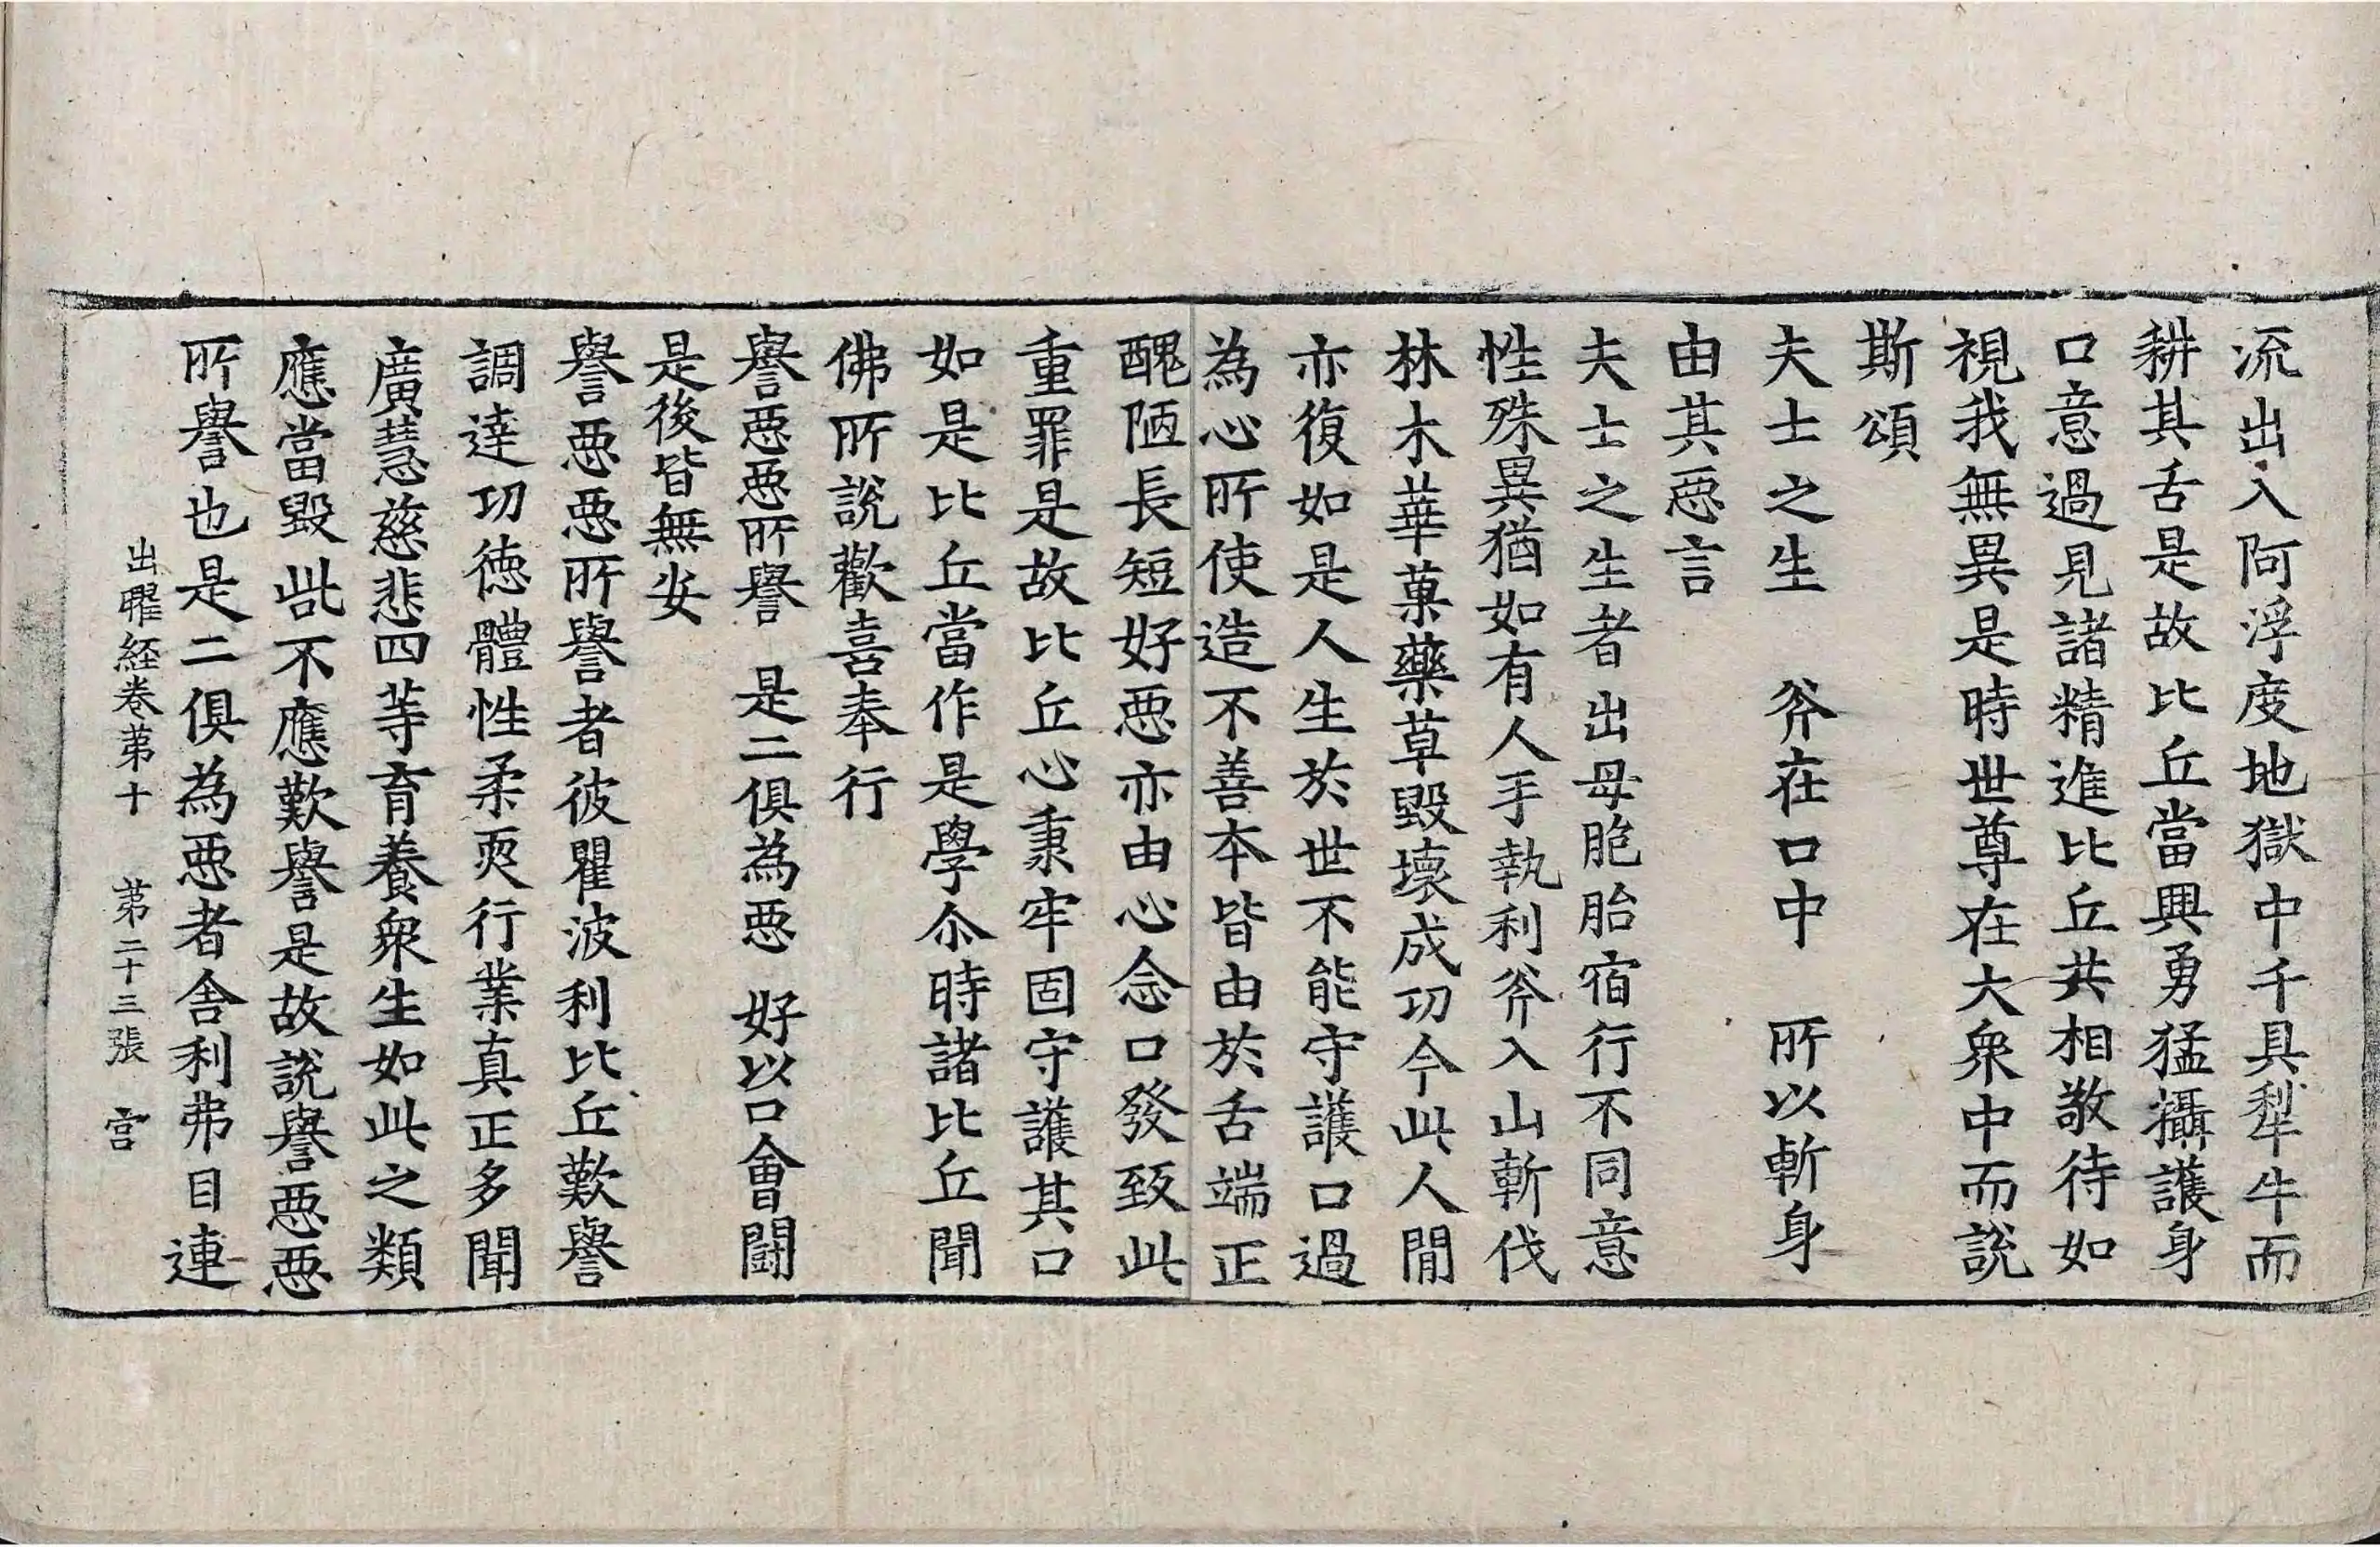 流出入阿浮度地獄中千具犁牛而
耕其舌是故比丘當興勇猛攝護身
口意過見諸精進比丘共相敬待如
視我無異是時世尊在大衆中而說
斯頌
夫士之生　斧在口中　所以斬身
由其惡言
夫士之生者出母胞胎宿行不同意
性殊異猶如有人手執利斧入山斬伐
林木華菓藥草毀壞成功今此人間
亦復如是人生於世不能守護口過
為心所使造不善本皆由於舌端正
醜陋長短好惡亦由心念口發致此
重罪是故比丘心秉牢固守護其口
如是比丘當作是學尒時諸比丘聞
佛所說歡喜奉行
譽惡惡所譽　是二俱為惡　好以口會鬪
是後皆無安
譽惡惡所譽者彼瞿波利比丘歎譽
調達功德體性柔耎行業真正多聞
廣慧慈悲四等育養衆生如此之類
應當毀呰不應歎譽是故說譽惡惡
所譽也是二俱為惡者舍利弗目連
出曜経卷第十　第二十三張　宫